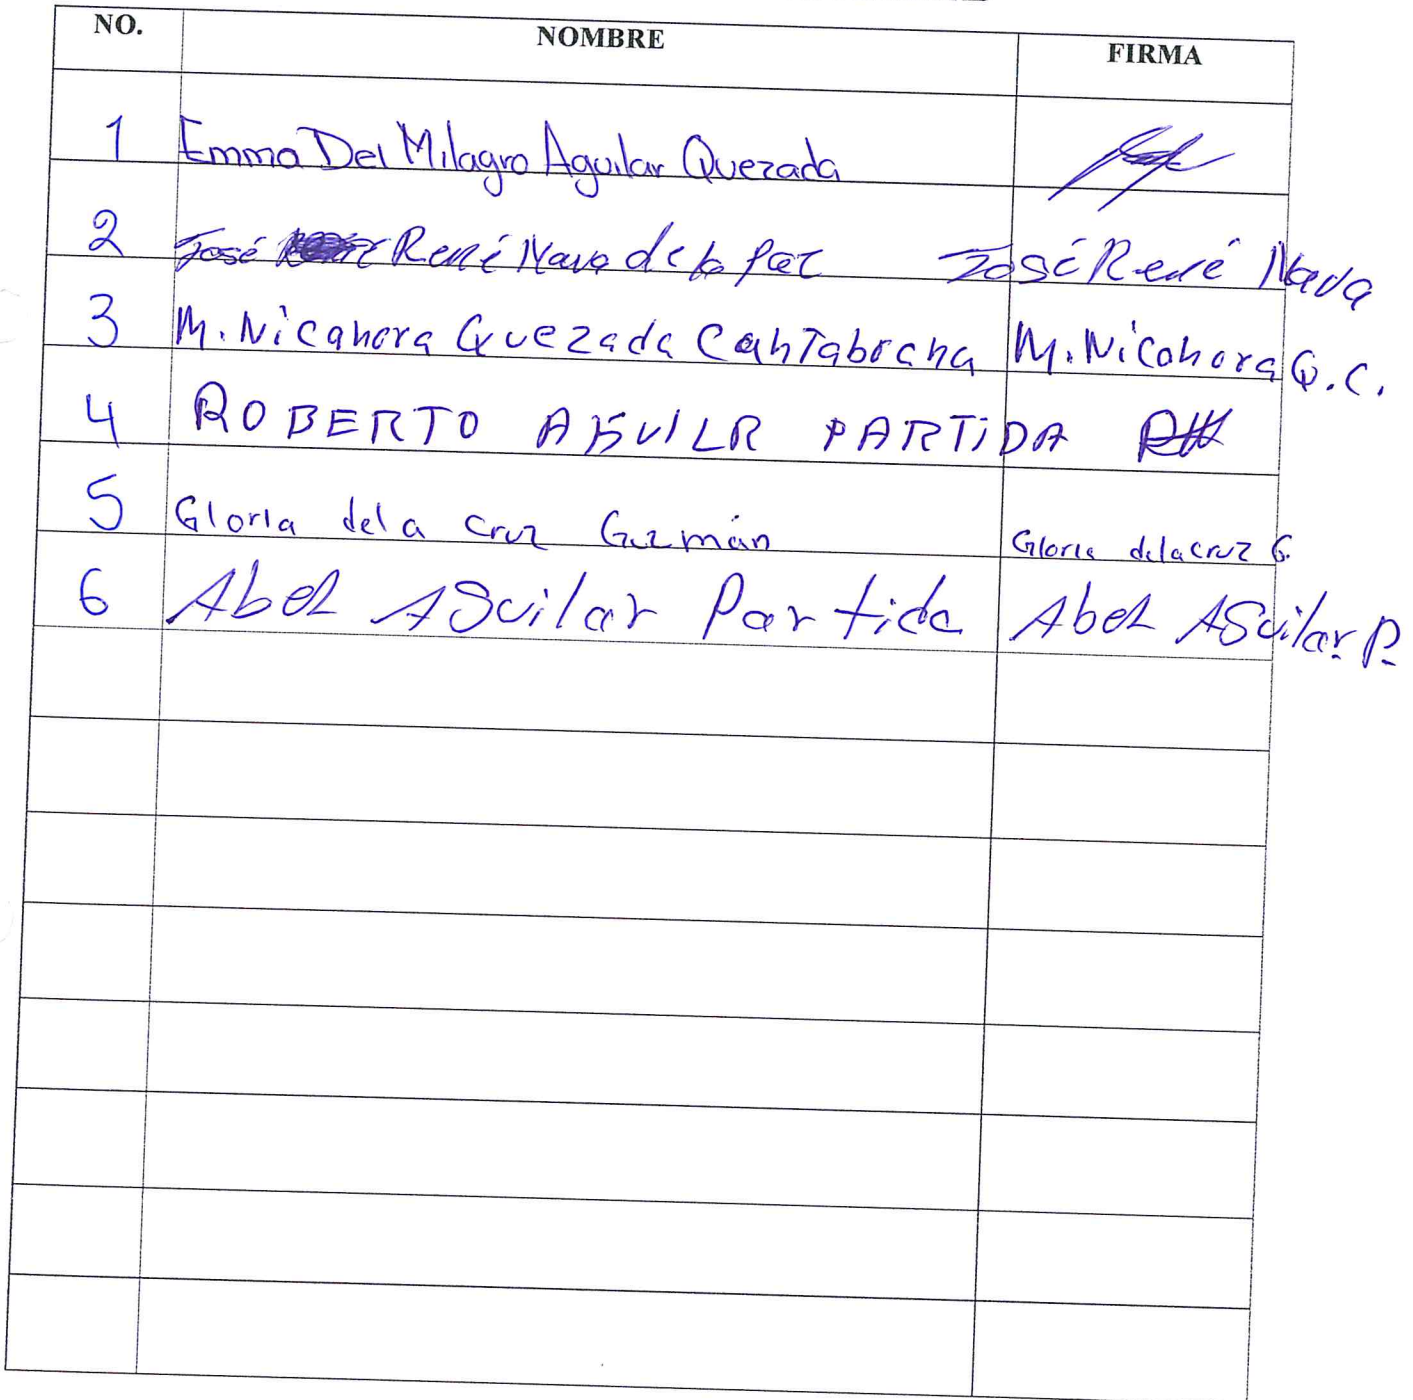 NO. NOMBRE FIRMA
1 Emma Del Milagro Aguilar Quezada
2 José René Nava de la Paz José René Nava
3 M. Nicanora Quezada Cantabrana M. Nicanora Q.C.
4 ROBERTO AGUILR PARTIDA
5 Gloria dela Cruz Guzmán Gloria delacruz G.
6 Abel Aguilar Partida Abel Aguilar P.